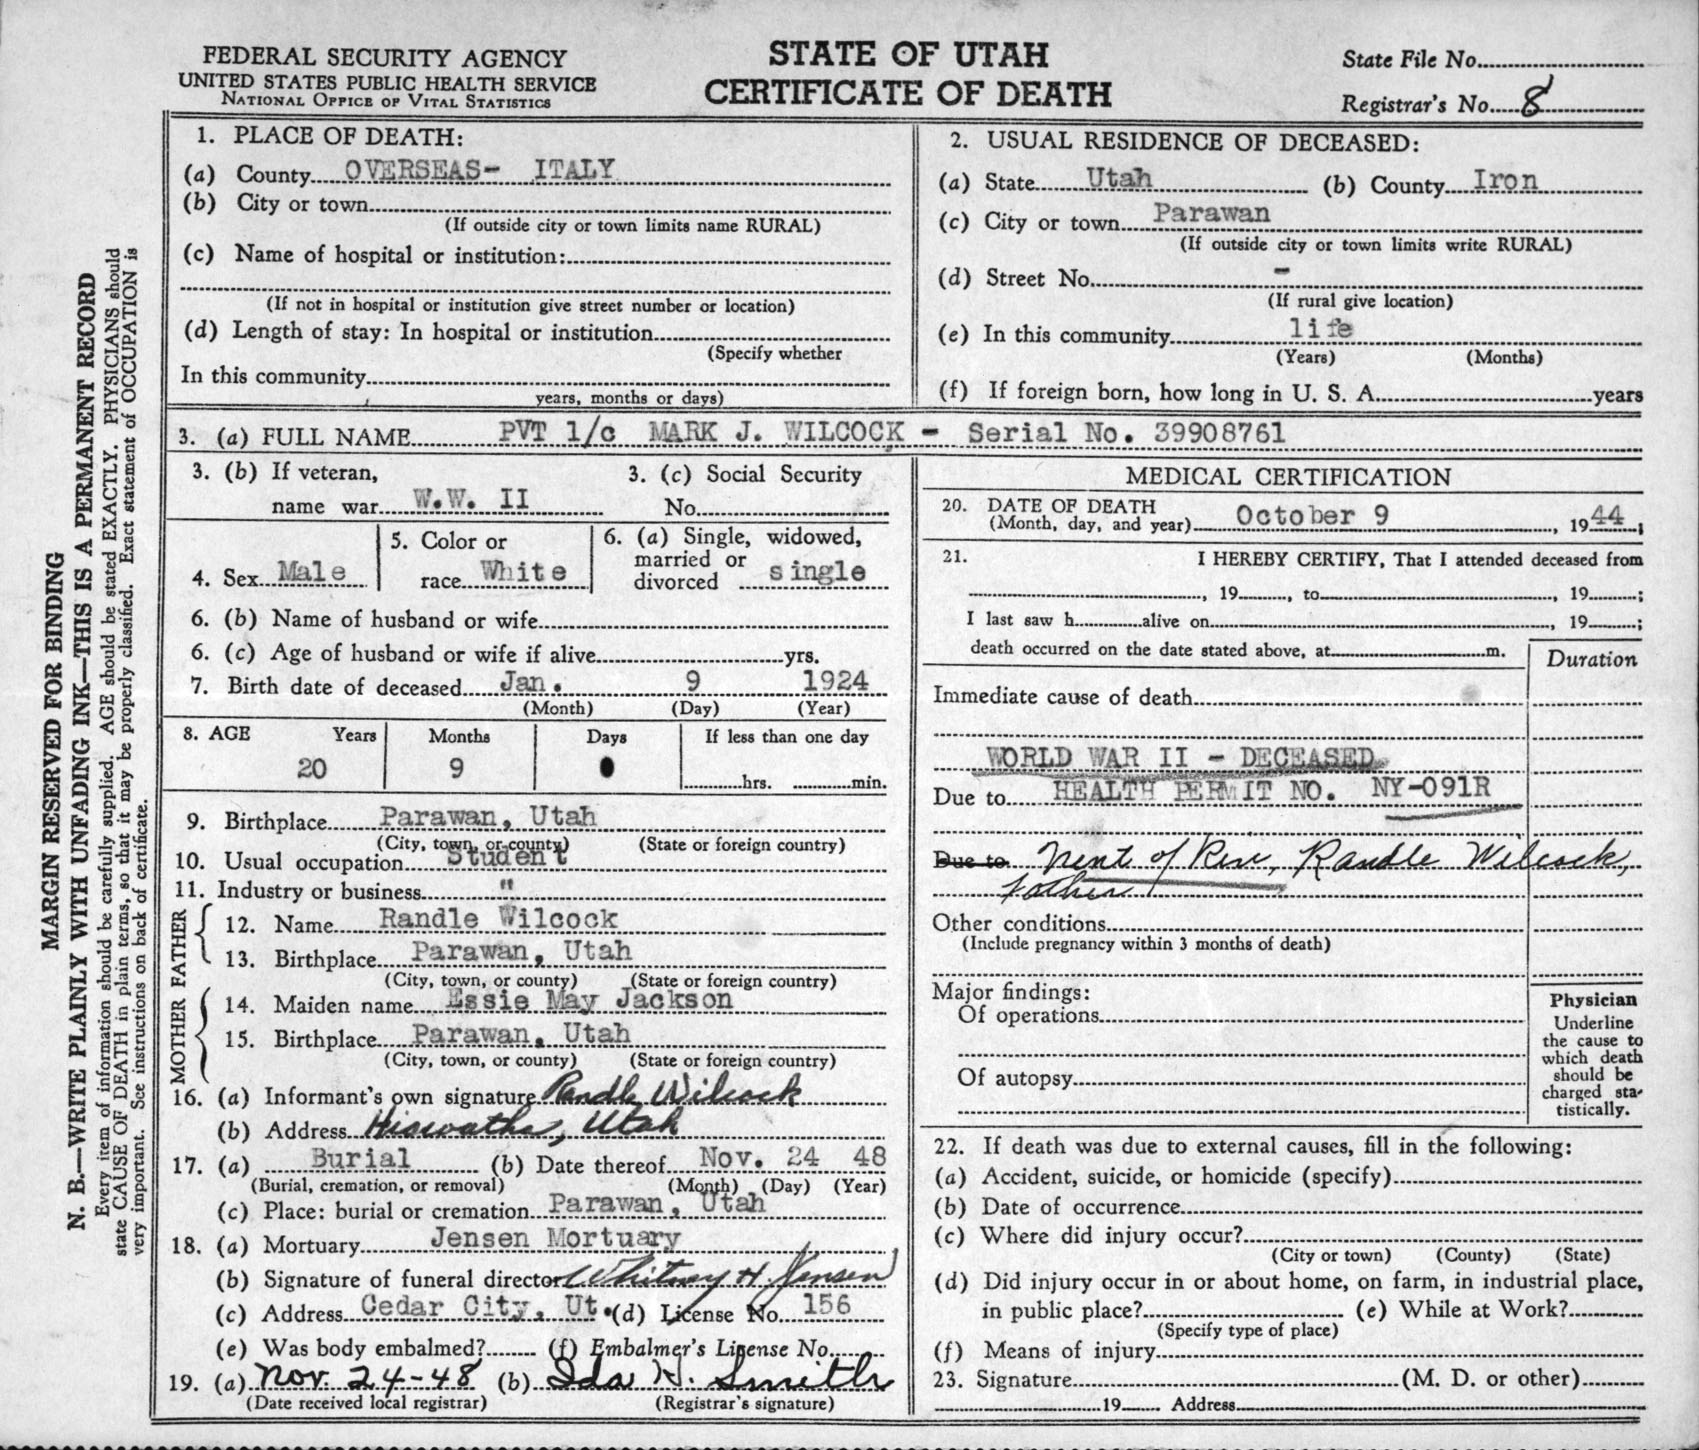 FEDERAL SECURITY AGENCY
UNITED STATES PUBLIC HEALTH SERVICE
NATIONAL OFFICE OF VITAL STATISTICS
STATE OF UTAH
CERTIFICATE OF DEATH
State File No.
Registrar's No. 8
1. PLACE OF DEATH:
(a) County OVERSEAS- ITALY
(b) City or town
(If outside city or town limits name RURAL)
(c) Name of hospital or institution:
(If not in hospital or institution give street number or location)
(d) Length of stay: In hospital or institution
(Specify whether
In this community
years, months or days)
2. USUAL RESIDENCE OF DECEASED:
(a) State Utah (b) County Iron
(c) City or town Parawan
(If outside city or town limits write RURAL)
(d) Street No. -
(If rural give location)
(e) In this community life
(Years) (Months)
(f) If foreign born, how long in U. S. A. years
3. (a) FULL NAME PVT 1/c MARK J. WILCOCK - Serial No. 39908761
3. (b) If veteran,
name war W.W. II
3. (c) Social Security
No.
4. Sex Male
5. Color or
race White
6. (a) Single, widowed,
married or
divorced single
6. (b) Name of husband or wife
6. (c) Age of husband or wife if alive yrs.
7. Birth date of deceased Jan. 9 1924
(Month) (Day) (Year)
8. AGE Years Months Days If less than one day
20 9 hrs. min.
9. Birthplace Parawan, Utah
(City, town, or county) (State or foreign country)
10. Usual occupation Student
11. Industry or business "
FATHER
12. Name Randle Wilcock
13. Birthplace Parawan, Utah
(City, town, or county) (State or foreign country)
MOTHER
14. Maiden name Essie May Jackson
15. Birthplace Parawan, Utah
(City, town, or county) (State or foreign country)
16. (a) Informant's own signature Randle Wilcock
(b) Address Hiawatha, Utah
17. (a) Burial (b) Date thereof Nov. 24 48
(Burial, cremation, or removal) (Month) (Day) (Year)
(c) Place: burial or cremation Parawan, Utah
18. (a) Mortuary Jensen Mortuary
(b) Signature of funeral director Whitney H. Jensen
(c) Address Cedar City, Ut. (d) License No. 156
(e) Was body embalmed? (f) Embalmer's License No.
19. (a) Nov. 24-48 (b) Ida H. Smith
(Date received local registrar) (Registrar's signature)
MEDICAL CERTIFICATION
20. DATE OF DEATH
(Month, day, and year) October 9, 1944;
21. I HEREBY CERTIFY, That I attended deceased from
, 19 , to , 19 ;
I last saw h alive on , 19 ;
death occurred on the date stated above, at m.
Duration
Immediate cause of death
WORLD WAR II - DECEASED
Due to HEALTH PERMIT NO. NY-091R
Due to Next of Kin, Randle Wilcock,
father
Other conditions
(Include pregnancy within 3 months of death)
Major findings:
Of operations
Of autopsy
Physician
Underline
the cause to
which death
should be
charged sta-
tistically.
22. If death was due to external causes, fill in the following:
(a) Accident, suicide, or homicide (specify)
(b) Date of occurrence
(c) Where did injury occur?
(City or town) (County) (State)
(d) Did injury occur in or about home, on farm, in industrial place,
in public place? (e) While at Work?
(Specify type of place)
(f) Means of injury
23. Signature (M. D. or other)
19 Address
MARGIN RESERVED FOR BINDING
N. B.—WRITE PLAINLY WITH UNFADING INK—THIS IS A PERMANENT RECORD
Every item of information should be carefully supplied. AGE should be stated EXACTLY. PHYSICIANS should
state CAUSE OF DEATH in plain terms, so that it may be properly classified. Exact statement of OCCUPATION is
very important. See instructions on back of certificate.